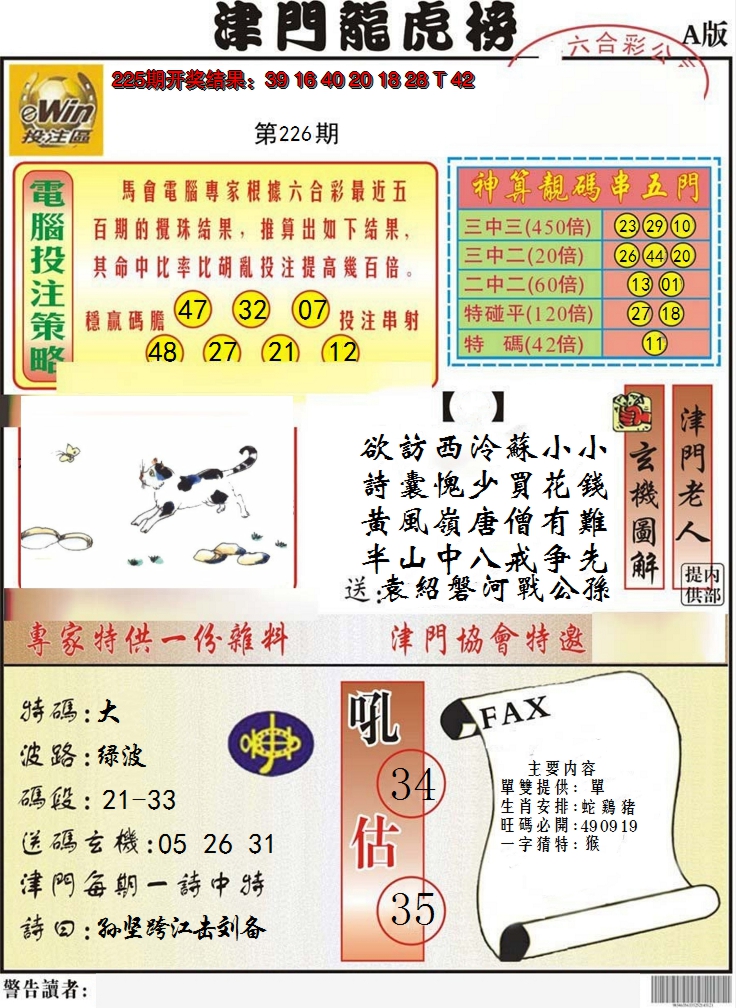 津門龍虎榜
六合彩公
A版
225期开奖结果：39 16 40 20 18 28 T 42
eWin
投注區
第226期
電腦投注策略
馬會電腦專家根據六合彩最近五
百期的攪珠结果，推算出如下结果，
其命中比率比胡亂投注提高幾百倍。
穩贏碼膽 47 32 07 投注串射
48 27 21 12
神算靚碼串五門
三中三(450倍) 23 29 10
三中二(20倍) 26 44 20
二中二(60倍) 13 01
特碰平(120倍) 27 18
特 碼(42倍) 11
【 】
欲訪西泠蘇小小
詩囊愧少買花錢
黃風嶺唐僧有難
半山中八戒争先
送:袁紹磐河戰公孫
玄機圖解
津門老人
内部提供
專家特供一份雜料
津門協會特邀
特碼:大
波路:绿波
碼段: 21-33
送碼玄機:05 26 31
津門每期一詩中特
詩曰:孙坚跨江击刘备
吼
34
估
35
FAX
主要内容
單雙提供: 單
生肖安排:蛇鷄豬
旺碼必開:490919
一字猜特: 猴
警告讀者: